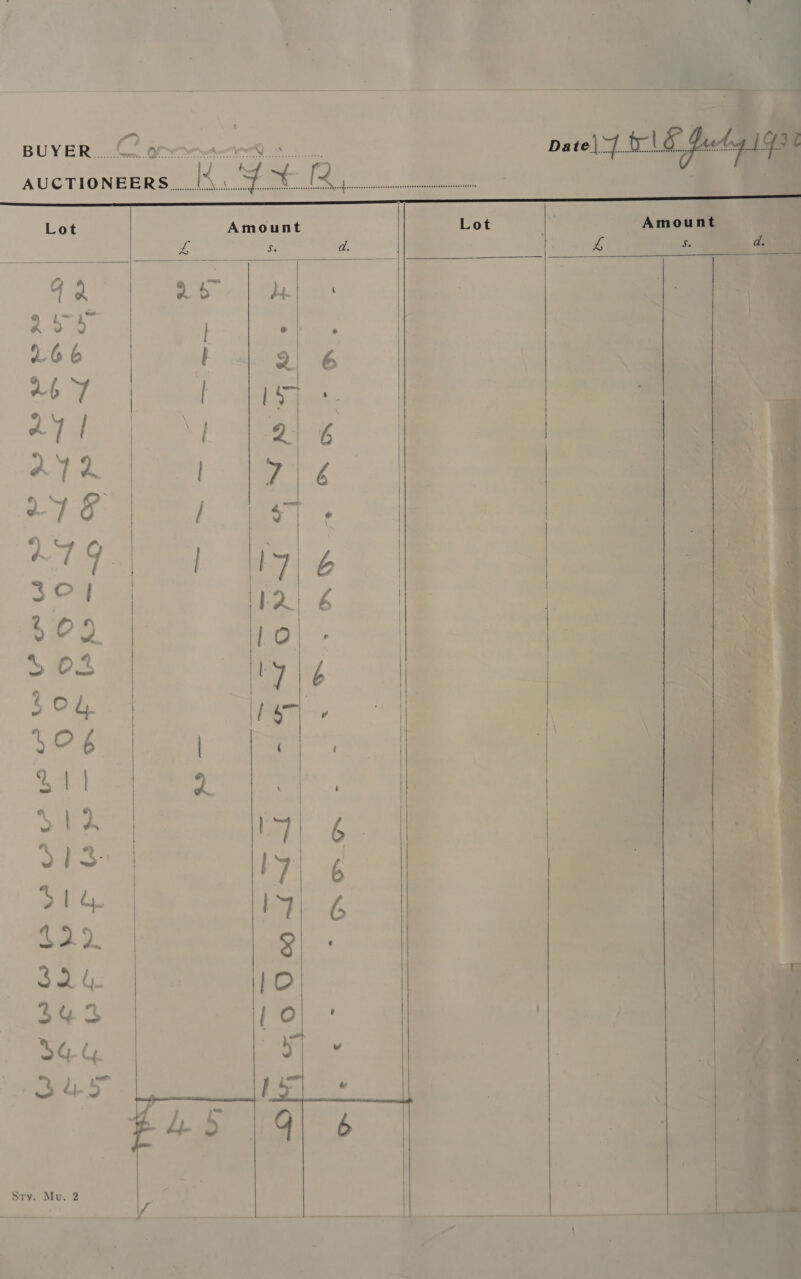 BUYER
Date 17 & 18 July 193
AUCTIONEERS K. F & R.
Lot Amount Lot Amount
£ s. d. £ s. d.
92 25 4 .
255 1 . .
266 1 2 6
267 1 15 .
271 1 2 6
272 1 7 6
278 1 5 .
279 1 17 6
301 12 6
302 10 .
303 17 6
304 15 .
306 1 . .
311 2 . .
312 17 6
313 17 6
314 17 6
322 8 .
324 10
343 10 .
344 5 .
345 15 .
£45 9 6
Srv. Mu. 2